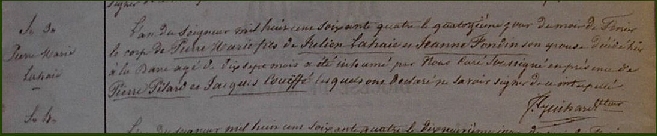 S. 30
Pierre Marie
Lahaie
L'an du Seigneur mil huit cent soixante quatre le quatorzième jour du mois de
le corps de Pierre Marie fils de Julien Lahaie et Jeanne Fondin son épouse décédé hier
à la Bare agé de dix sept mois a été inhumé par Nous Curé Soussigné en présence de
Pierre Pitard et Jacques Coueffé lesquels ont déclaré ne savoir signer de ce interpellé
S. 30
du Seigneur mil huit cent soixante quatre le dix neuvième jour